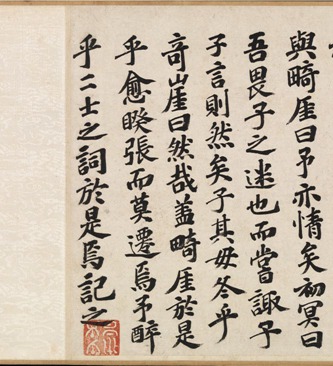 與畸厓曰予亦情矣初冥曰
吾畏子之迷也而當諏子
子言則然矣子其毋冬乎
奇崖曰然哉蓋畸厓於是
乎愈睽張而莫遷焉予醉
乎二士之詞於是焉記之